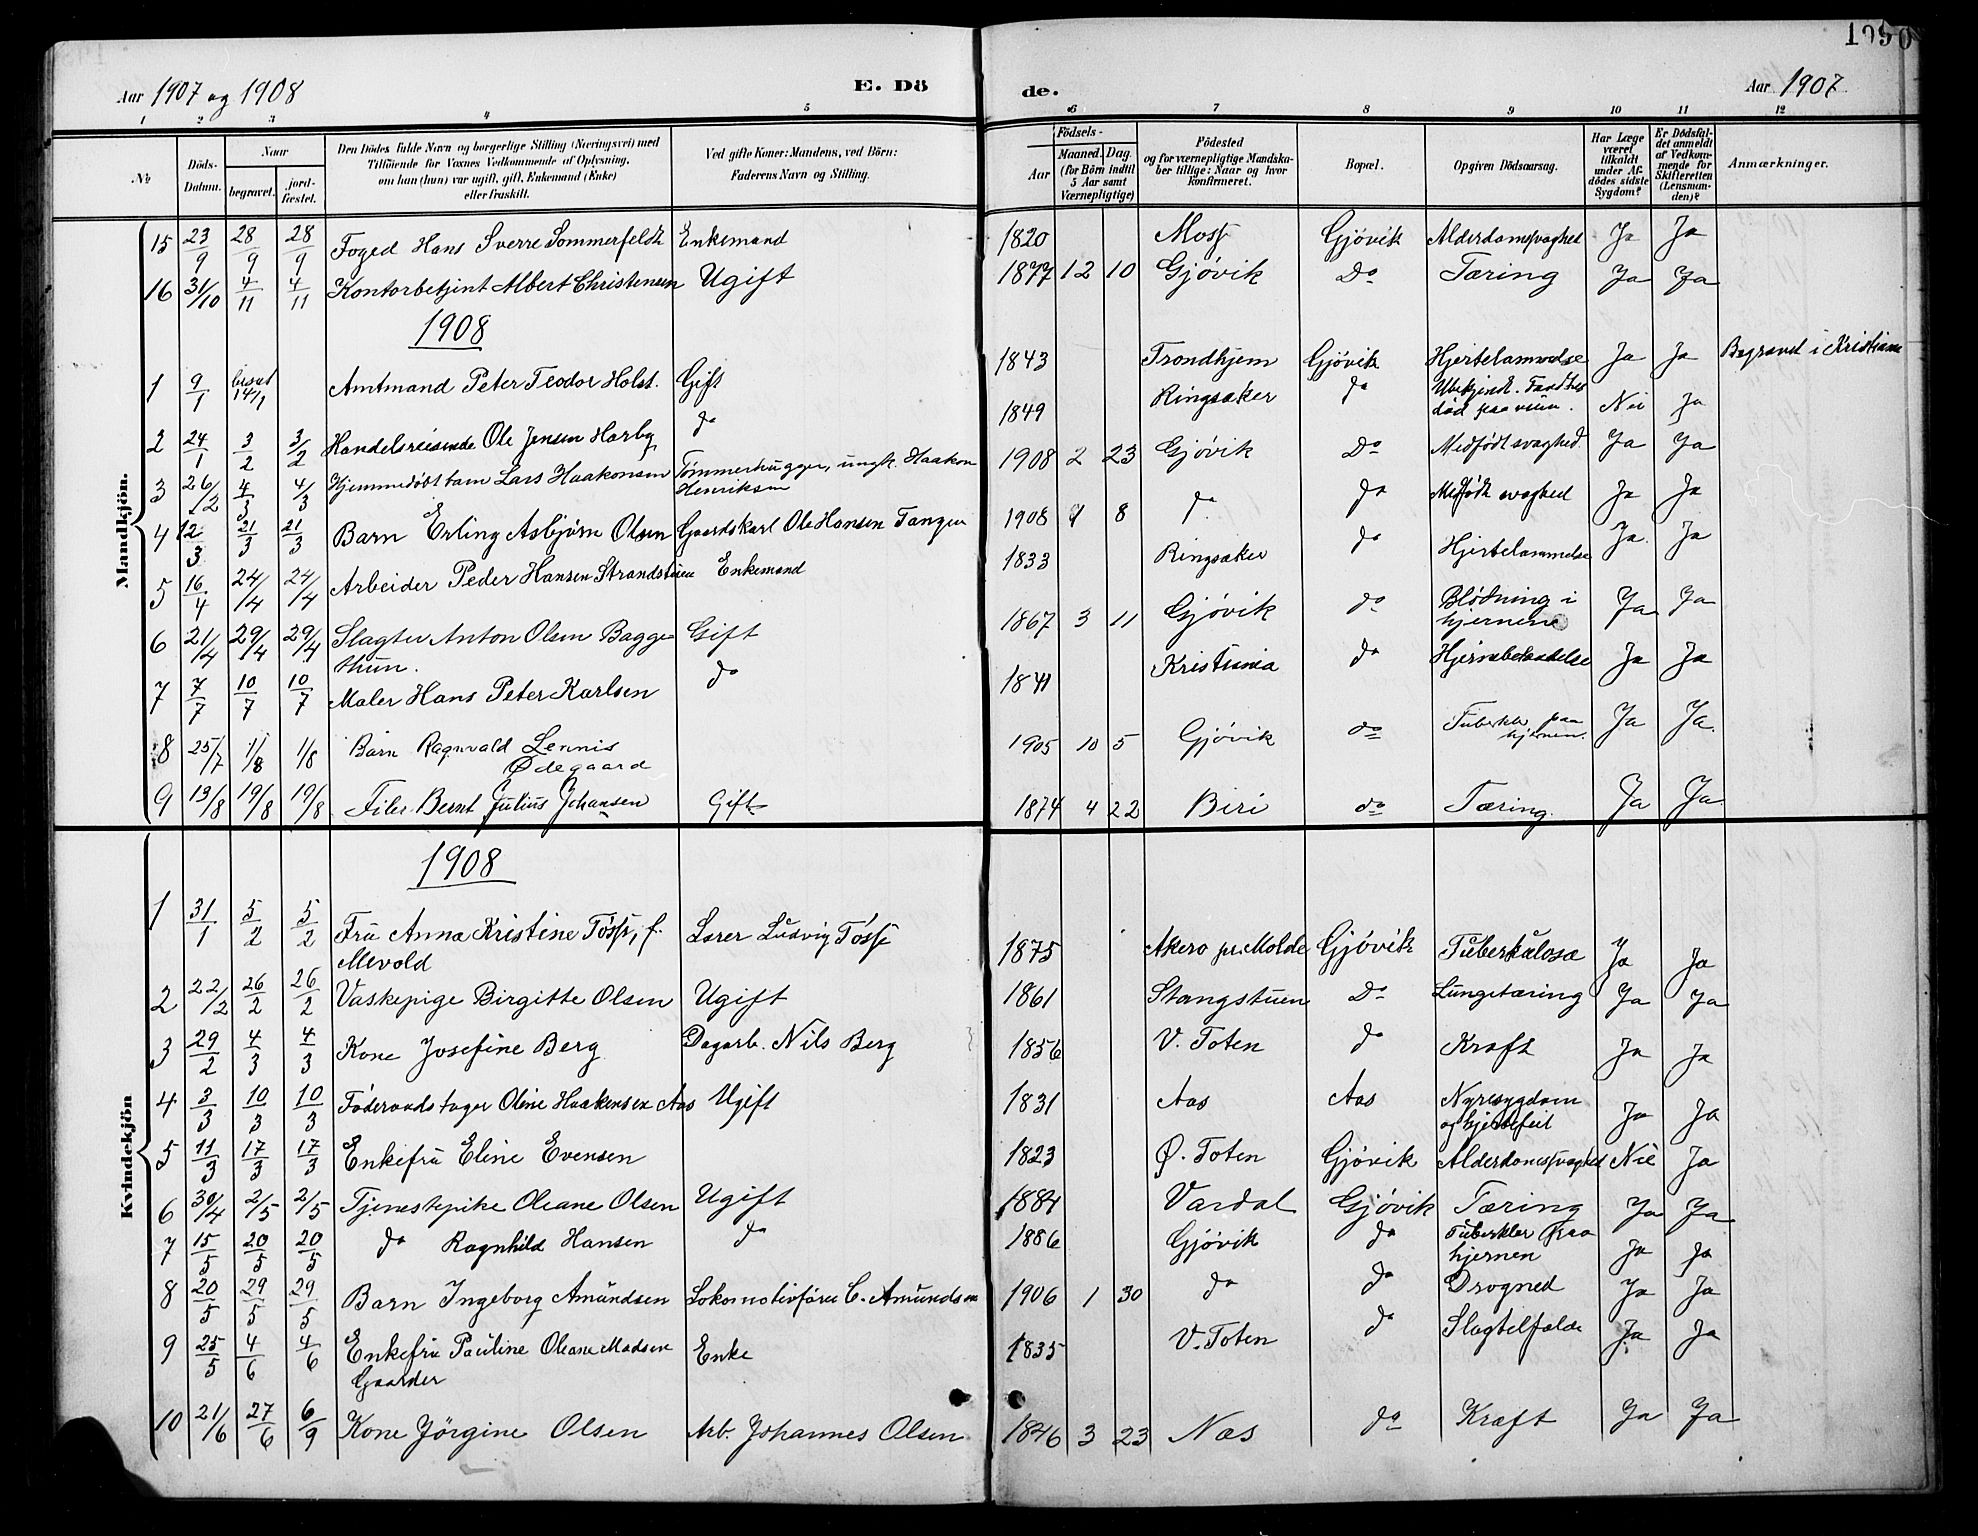 Aar 1907 og 1908
E. Dö
de.
Aar 1907
1 2 3 4 5 6 7 8 9 10 11 12
№ Döds-Datum. Naar begravet. jordfæstet. Den Dödes fulde Navn og borgerlige Stilling (Næringsvei) med Tilföiende for Voxnes Vedkommende af Oplysning, om han (hun) var ugift, gift, Enkemand (Enke) eller fraskilt. Ved gifte Koner: Mandens, ved Börn: Faderens Navn og Stilling. Födsels- Aar Maaned. Dag. (for Börn indtil 5 Aar samt Værnepligtige) Födested og for værnepligtige Mandskaber tillige: Naar og hvor konfirmeret. Bopæl. Opgiven Dödsaarsag. Har Læge været tilkaldt under Afdödes sidste Sygdom? Er Dödsfaldet anmeldt af Vedkommende for Skifteretten (Lensmanden)? Anmærkninger.
Mandkjön.
15 23/9 28/9 28/9 Foged Hans Sverre Sommerfeldt Enkemand 1820 Moss Gjøvik Alderdomssvaghed Ja Ja
16 31/10 4/11 4/11 Kontorbetjent Albert Christensen Ugift 1877 12 10 Gjøvik Do Tæring Ja Ja
1908
1 9/1 bisat 14/1 Amtmand Peter Teodor Holst. Gift 1843 Trondhjem Gjøvik Hjertelammelse Ja Ja Begravet i Kristiania
2 24/1 3/2 3/2 Handelsreisende Ole Jensen Horby do 1849 Ringsaker do Ubekjendt. Fandtes død paa veien. Nei Ja
3 26/2 4/3 4/3 Hjemmedøbt barn Lars Haakonsen Tømmerhugger, ungk. Haakon Henriksen 1908 2 23 Gjøvik Do Medfødt svaghed Ja Ja
4 12/3 21/3 21/3 Barn Erling Asbjørn Olsen Gaardskarl Ole Hansen Tangen 1908 8 do do Medfødt svaghed Ja Ja
5 16/4 24/4 24/4 Arbeider Peder Hansen Strandstuen Enkemand 1833 Ringsaker do Hjertelammelse Ja Ja
6 21/4 29/4 29/4 Slagter Anton Olsen Baggethun. Gift 1867 3 11 Gjøvik do Blødning i hjernen Ja Ja
7 7/7 10/7 10/7 Maler Hans Peter Karlsen do 1841 Kristiania do Ja Ja
8 25/7 1/8 1/8 Barn Ragnvald Lennis Ødegaard 1905 10 5 Gjøvik do Tuberkler paa hjernen. Ja Ja.
9 13/8 19/8 19/8 Filer Bernt Julius Johansen Gift 1874 4 22 Biri do Tæring. Ja Ja
Kvindekjön
1908
1 31/1 5/2 5/2 Fru Anna Kristine Tøsse, f. Mevold Lærer Ludvig Tøsse 1875 Akerø pr. Molde Gjøvik Tuberkulosa Ja Ja
2 22/2 26/2 26/2 Vaskepige Birgitte Olsen Ugift 1861 Stangstuen Do Lungetæring Ja Ja
3 29/2 4/3 4/3 Kone Josefine Berg Dagarb. Nils Berg 1856 V. Toten do Kræft Ja Ja
4 3/3 10/3 10/3 Føderaadstager Oline Haakensen Aas Ugift 1831 Aas Aas Nyresygdom og hjertefeil Ja Ja
5 11/3 17/3 17/3 Enkefru Eline Evensen 1823 Ø. Toten Gjøvik Alderdomssvaghed Nei Ja
6 30/4 2/5 2/5 Tjenestepike Oleane Olsen Ugift 1884 Vardal Gjøvik Tæring Ja Ja
7 15/5 20/5 20/5 do Ragnhild Hansen do 1886 Gjøvik do Tuberkler paa hjernen Ja Ja
8 20/5 29/5 29/5 Barn Ingeborg Amundsen Lokomotivfører C. Amundsen 1906 1 30 do do Drogned Ja Ja
9 25/5 4/6 4/6 Enkefru Pauline Oleane Madsen Gaarder Enke 1835 V. Toten do Slagtilfælde Ja Ja
10 21/6 27/6 6/9 Kone Jörgine Olsen Arb. Johannes Olsen 1846 3 23 Næs do Kræft Ja Ja